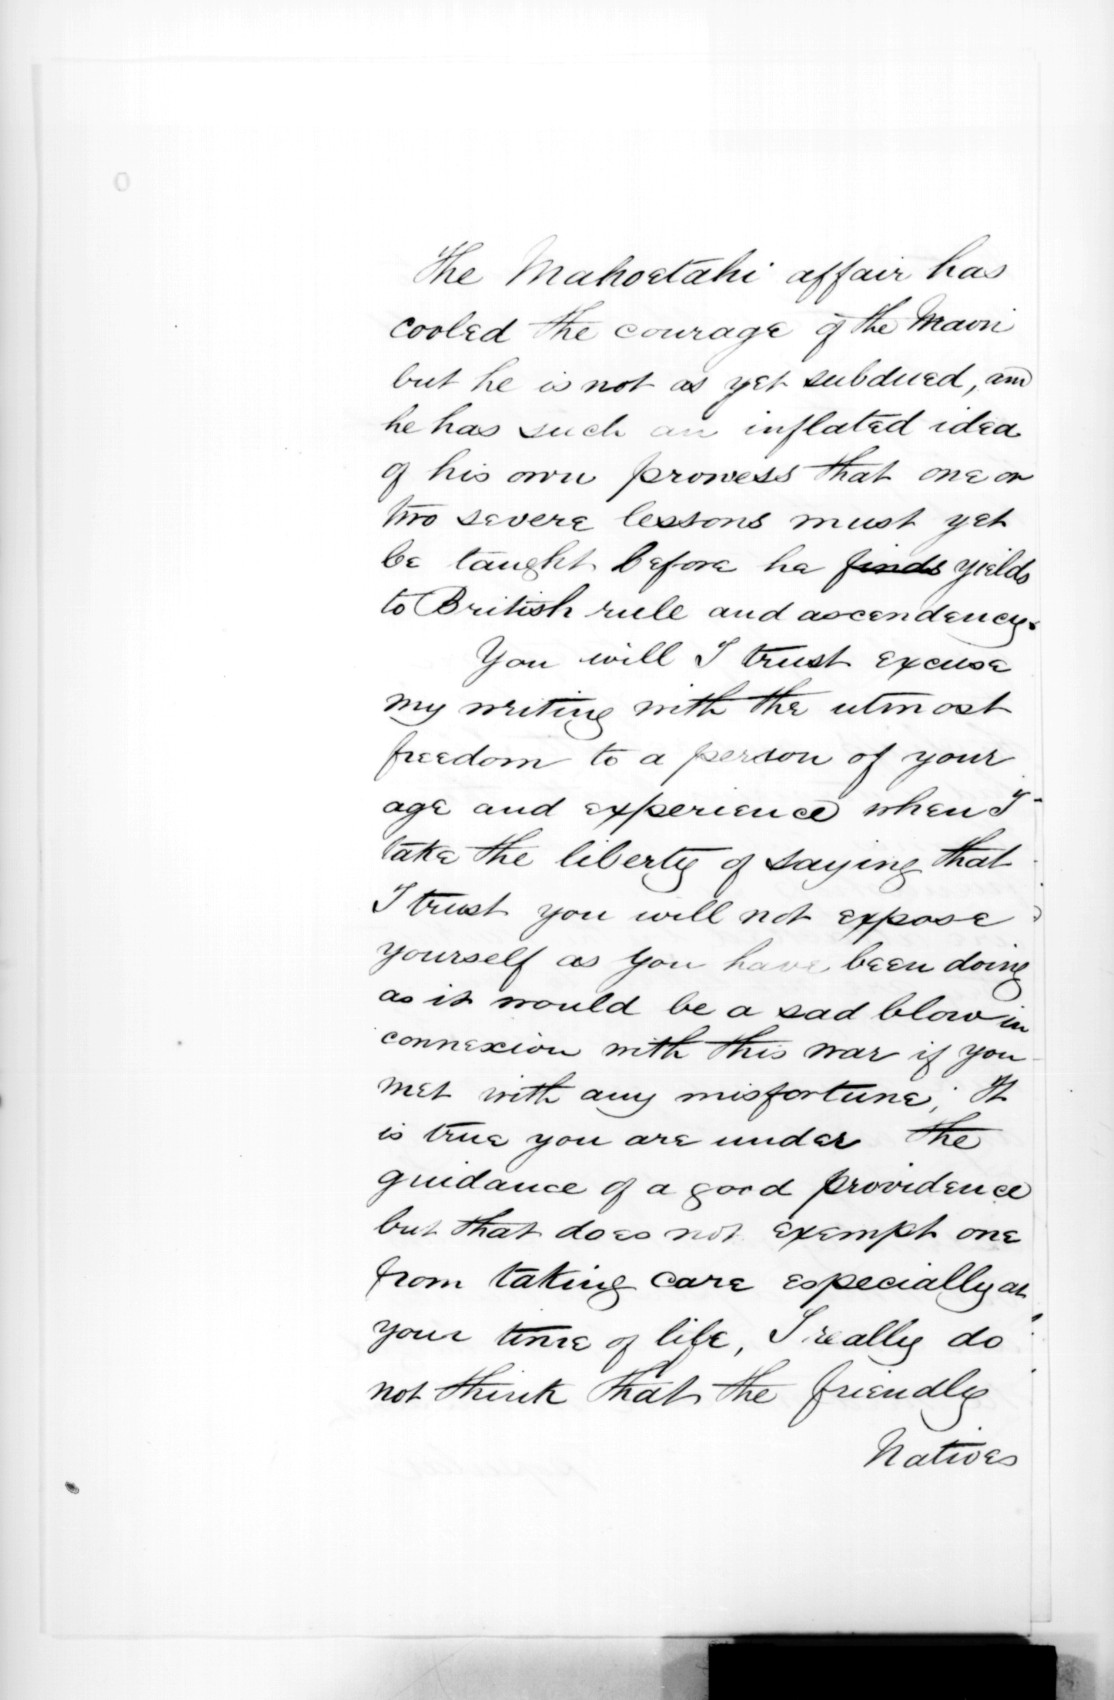 The Mahoetahi affair has
cooled the courage of the Maori
but he is not as yet subdued, and
he has such an inflated idea
of his own prowess that one or
two severe lessons must yet
be taught before he finds yields
to British rule and ascendency.
You will I trust excuse
my writing with the utmost
freedom to a person of your
age and experience when I
take the liberty of saying that
I trust you will not expose
yourself as you have been doing
as it would be a sad blow in
connexion with this war if you
met with any misfortune; It
is true you are under the
guidance of a good providence
but that does not exempt one
from taking care especially at
your time of life, I really do
not think that the friendly
Natives